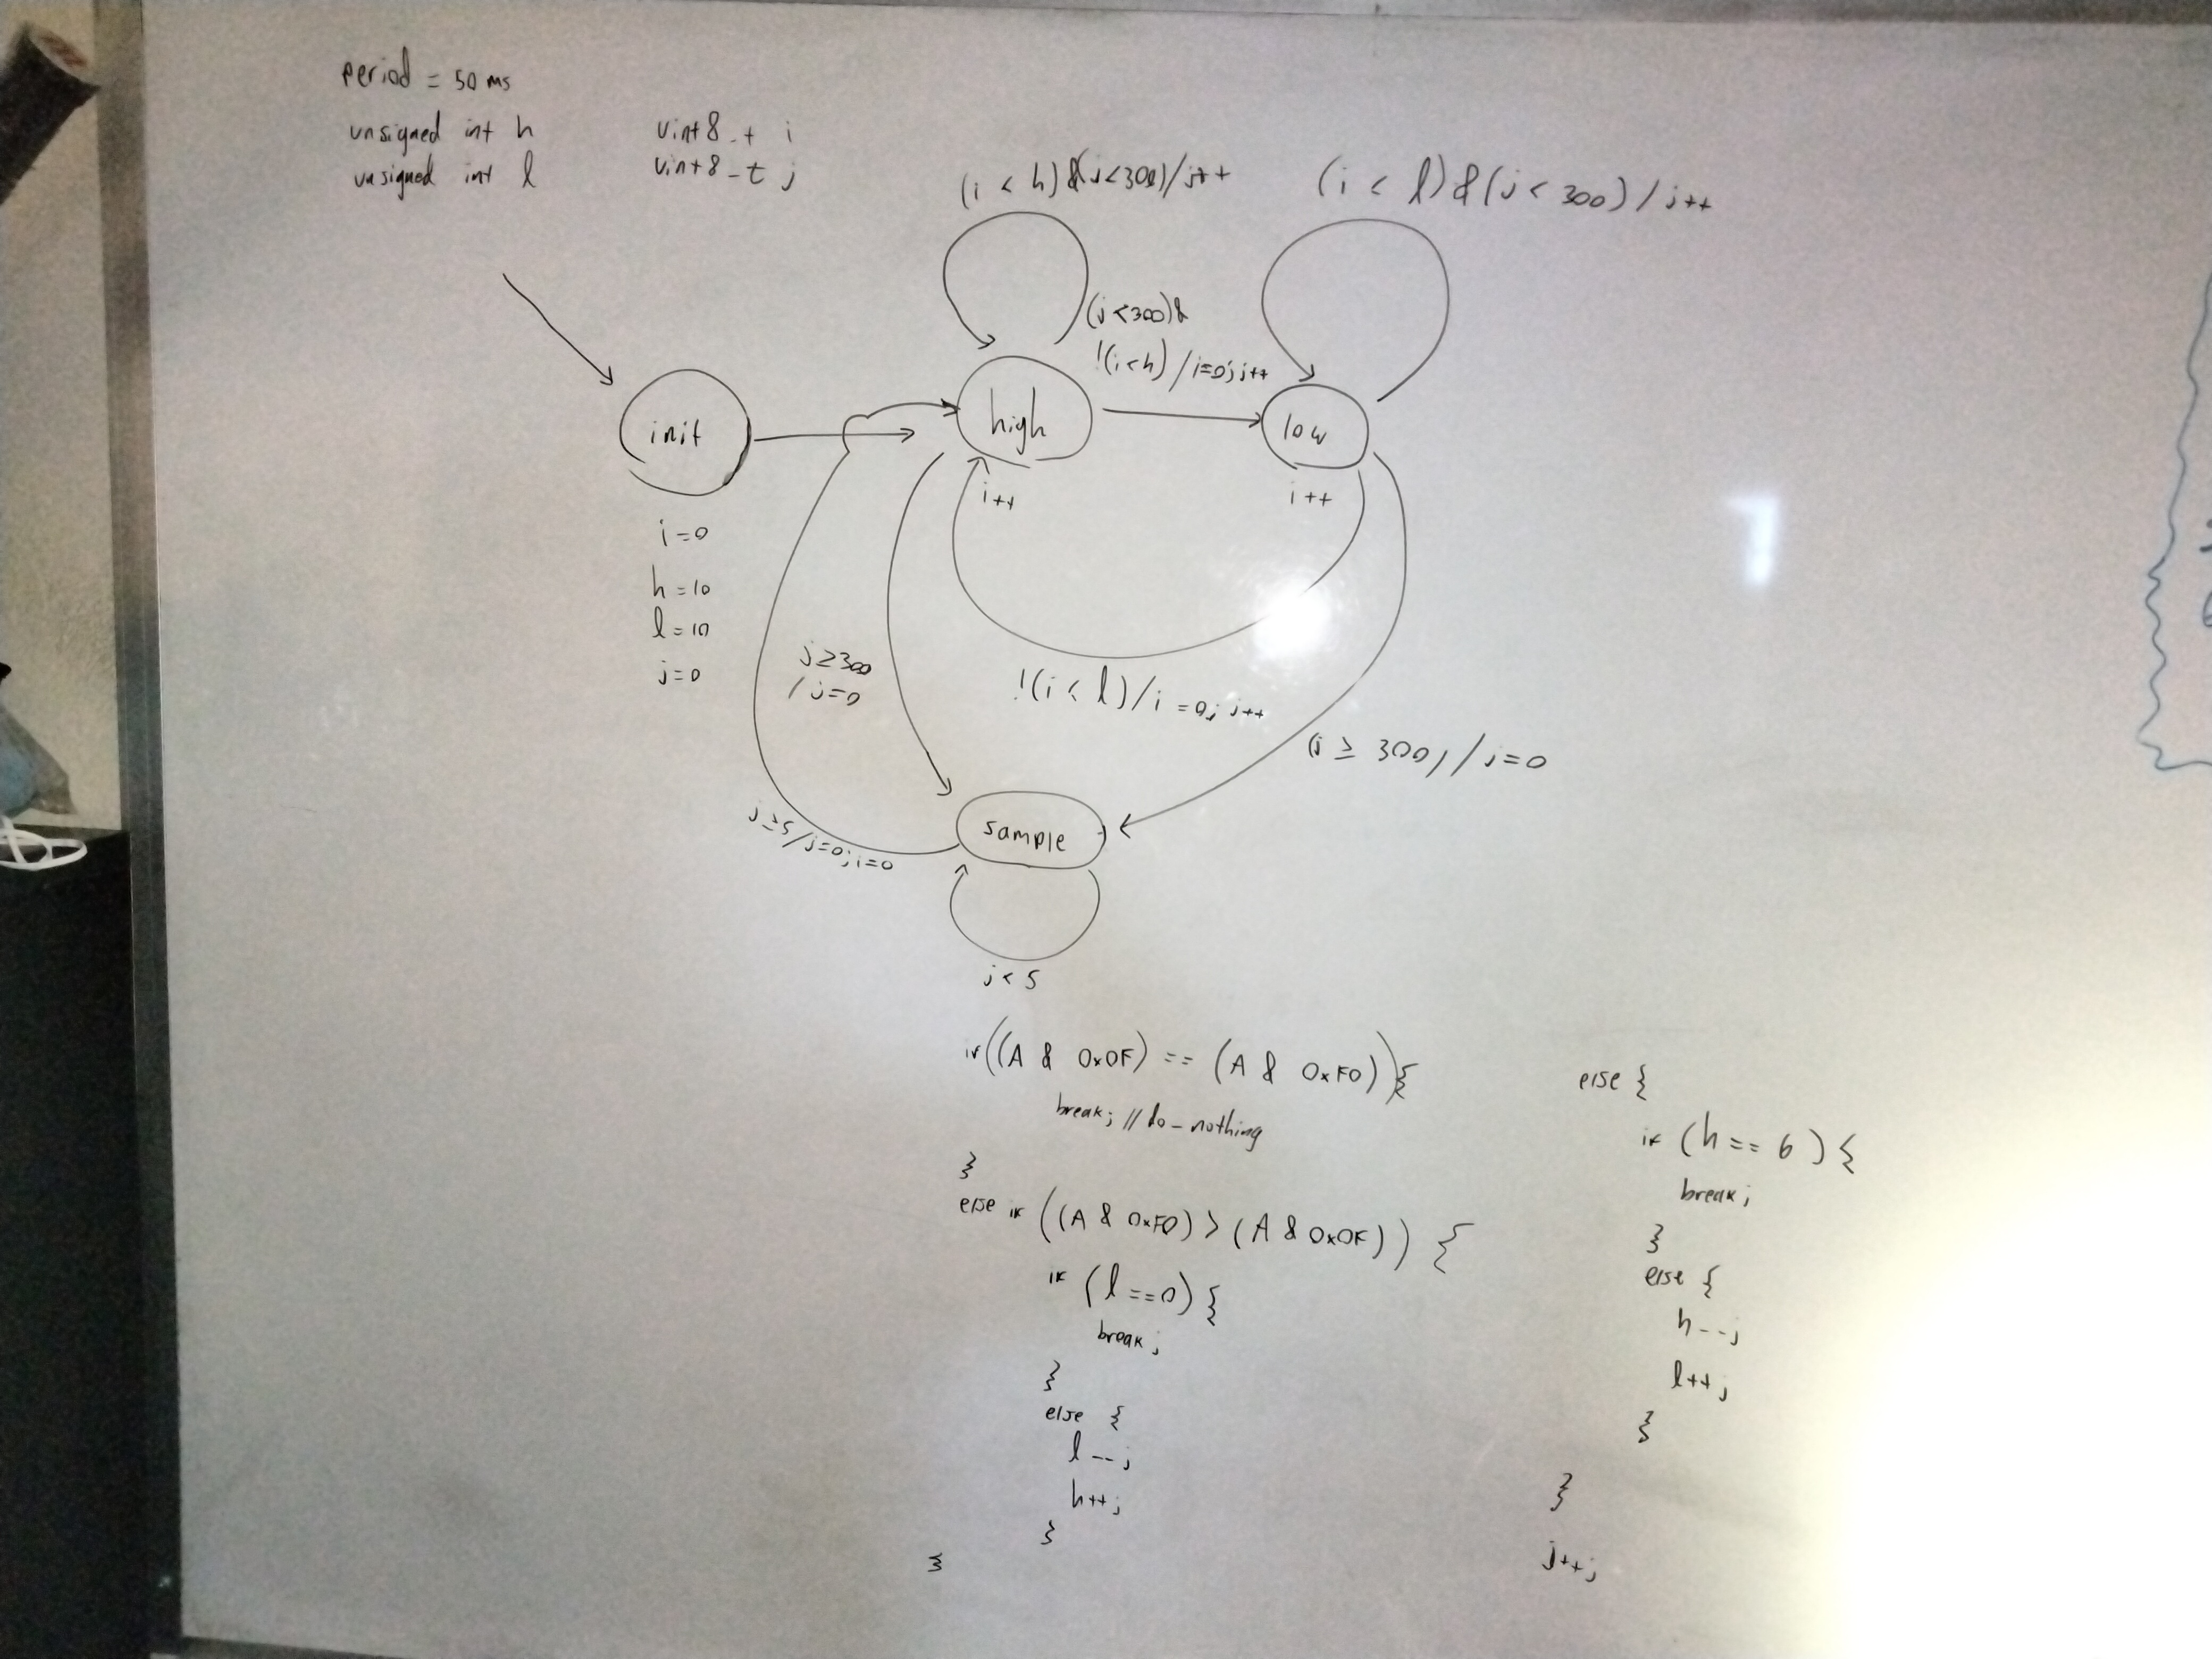 period = 50 ms
unsigned int h
unsigned int l
uint8_t i
uint8_t j
(i < h) & (j<300)/j++
(i < l) & (j < 300) / j++
(j<300)&
!(i<h) / i=0; j++
init
high
low
i++
i++
i=0
h=10
l=10
j=0
j≥300
/ j=0
!(i < l) / i = 0; j++
(j ≥ 300) / j=0
j≥5/j=0; i=0
sample
j < 5
if((A & 0x0F) == (A & 0xF0)){
break; // do-nothing
}
else if ((A & 0xF0) > (A & 0x0F)) {
if (l == 0) {
break;
}
else {
l--;
h++;
}
}
else {
if (h == 6) {
break;
}
else {
h--;
l++;
}
}
j++;